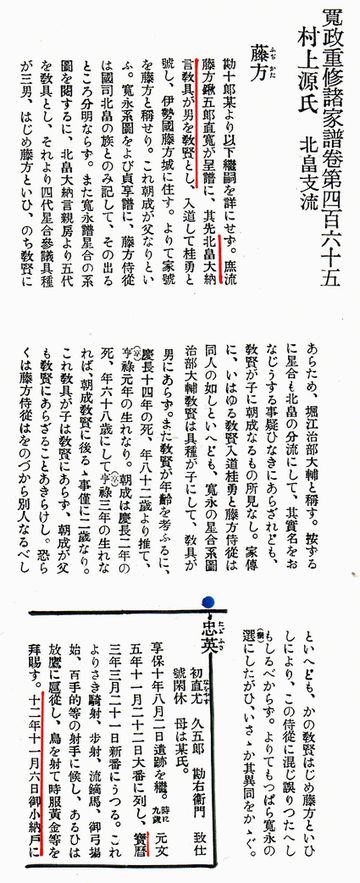 寛政重修諸家譜巻第四百六十五
村上源氏 北畠支流
藤方
ふぢかた
勘十郎某より以下繼嗣を詳にせず。庶流
藤方鍬五郎直寛が呈譜に、其先北畠大納
言敎具が男を敎賢とし、入道して桂勇と
號し、伊勢國藤方城に住す。よりて家號
を藤方と稱せり。これ朝成が父なりとい
ふ。寛永系圖をよび貞享譜に、藤方侍從
は國司北畠の族とのみ記して、その出る
ところ分明ならず。また寛永譜星合の系
圖を閲するに、北畠大納言親房より五代
を敎具とし、それより四代星合參議具種
が三男、はじめ藤方といひ、のち敎賢に
あらため、堀江治部大輔と稱す。按ずる
に星合も北畠の分流にして、其實名をお
なじうする事疑ひなきにあらざれども、
敎賢が子に朝成なるもの所見なし。家傳
に、いはゆる敎賢入道桂勇と藤方侍從は
同人の如しといへども、寛永の星合系圖
治部大輔敎賢は具種が子にして、敎具が
男にあらず。また敎賢が年齡を考ふるに、
慶長十四年の死、年八十二歲より推て、
(享)
亨祿元年の生れなり。朝成は慶長二年の
死、年六十八歲にして亨祿三年の生れな
(享)
れば、朝成敎賢に後るゝ事僅に二歲なり。
これ敎具が子は敎賢にあらず、朝成が父
も敎賢にあらざることあきらけし。恐ら
くは藤方侍從はをのづから別人なるべし
といへども、かの敎賢はじめ藤方といひ
しにより、この侍從に混じ誤りつたへし
もしるべからず。よりてもつぱら寛永の
選にしたがひ、いさゝか其異同をかゝぐ。
忠英
たゞふさ
初直尤 久五郎 勘右衞門 致仕
號閑休 母は某氏。
享保十年八月二日遺跡を繼。時に九歲 元文
五年十一月二十二日大番に列し、寶曆
三年三月二十一日新番にうつる。これ
よりさき騎射、歩射、流鏑馬、御弓場
始、百手的等の射手に候し、あるひは
放鷹に扈從し、鳥を射て時服黃金等を
拜賜す。十二年十一月六日御小納戶に